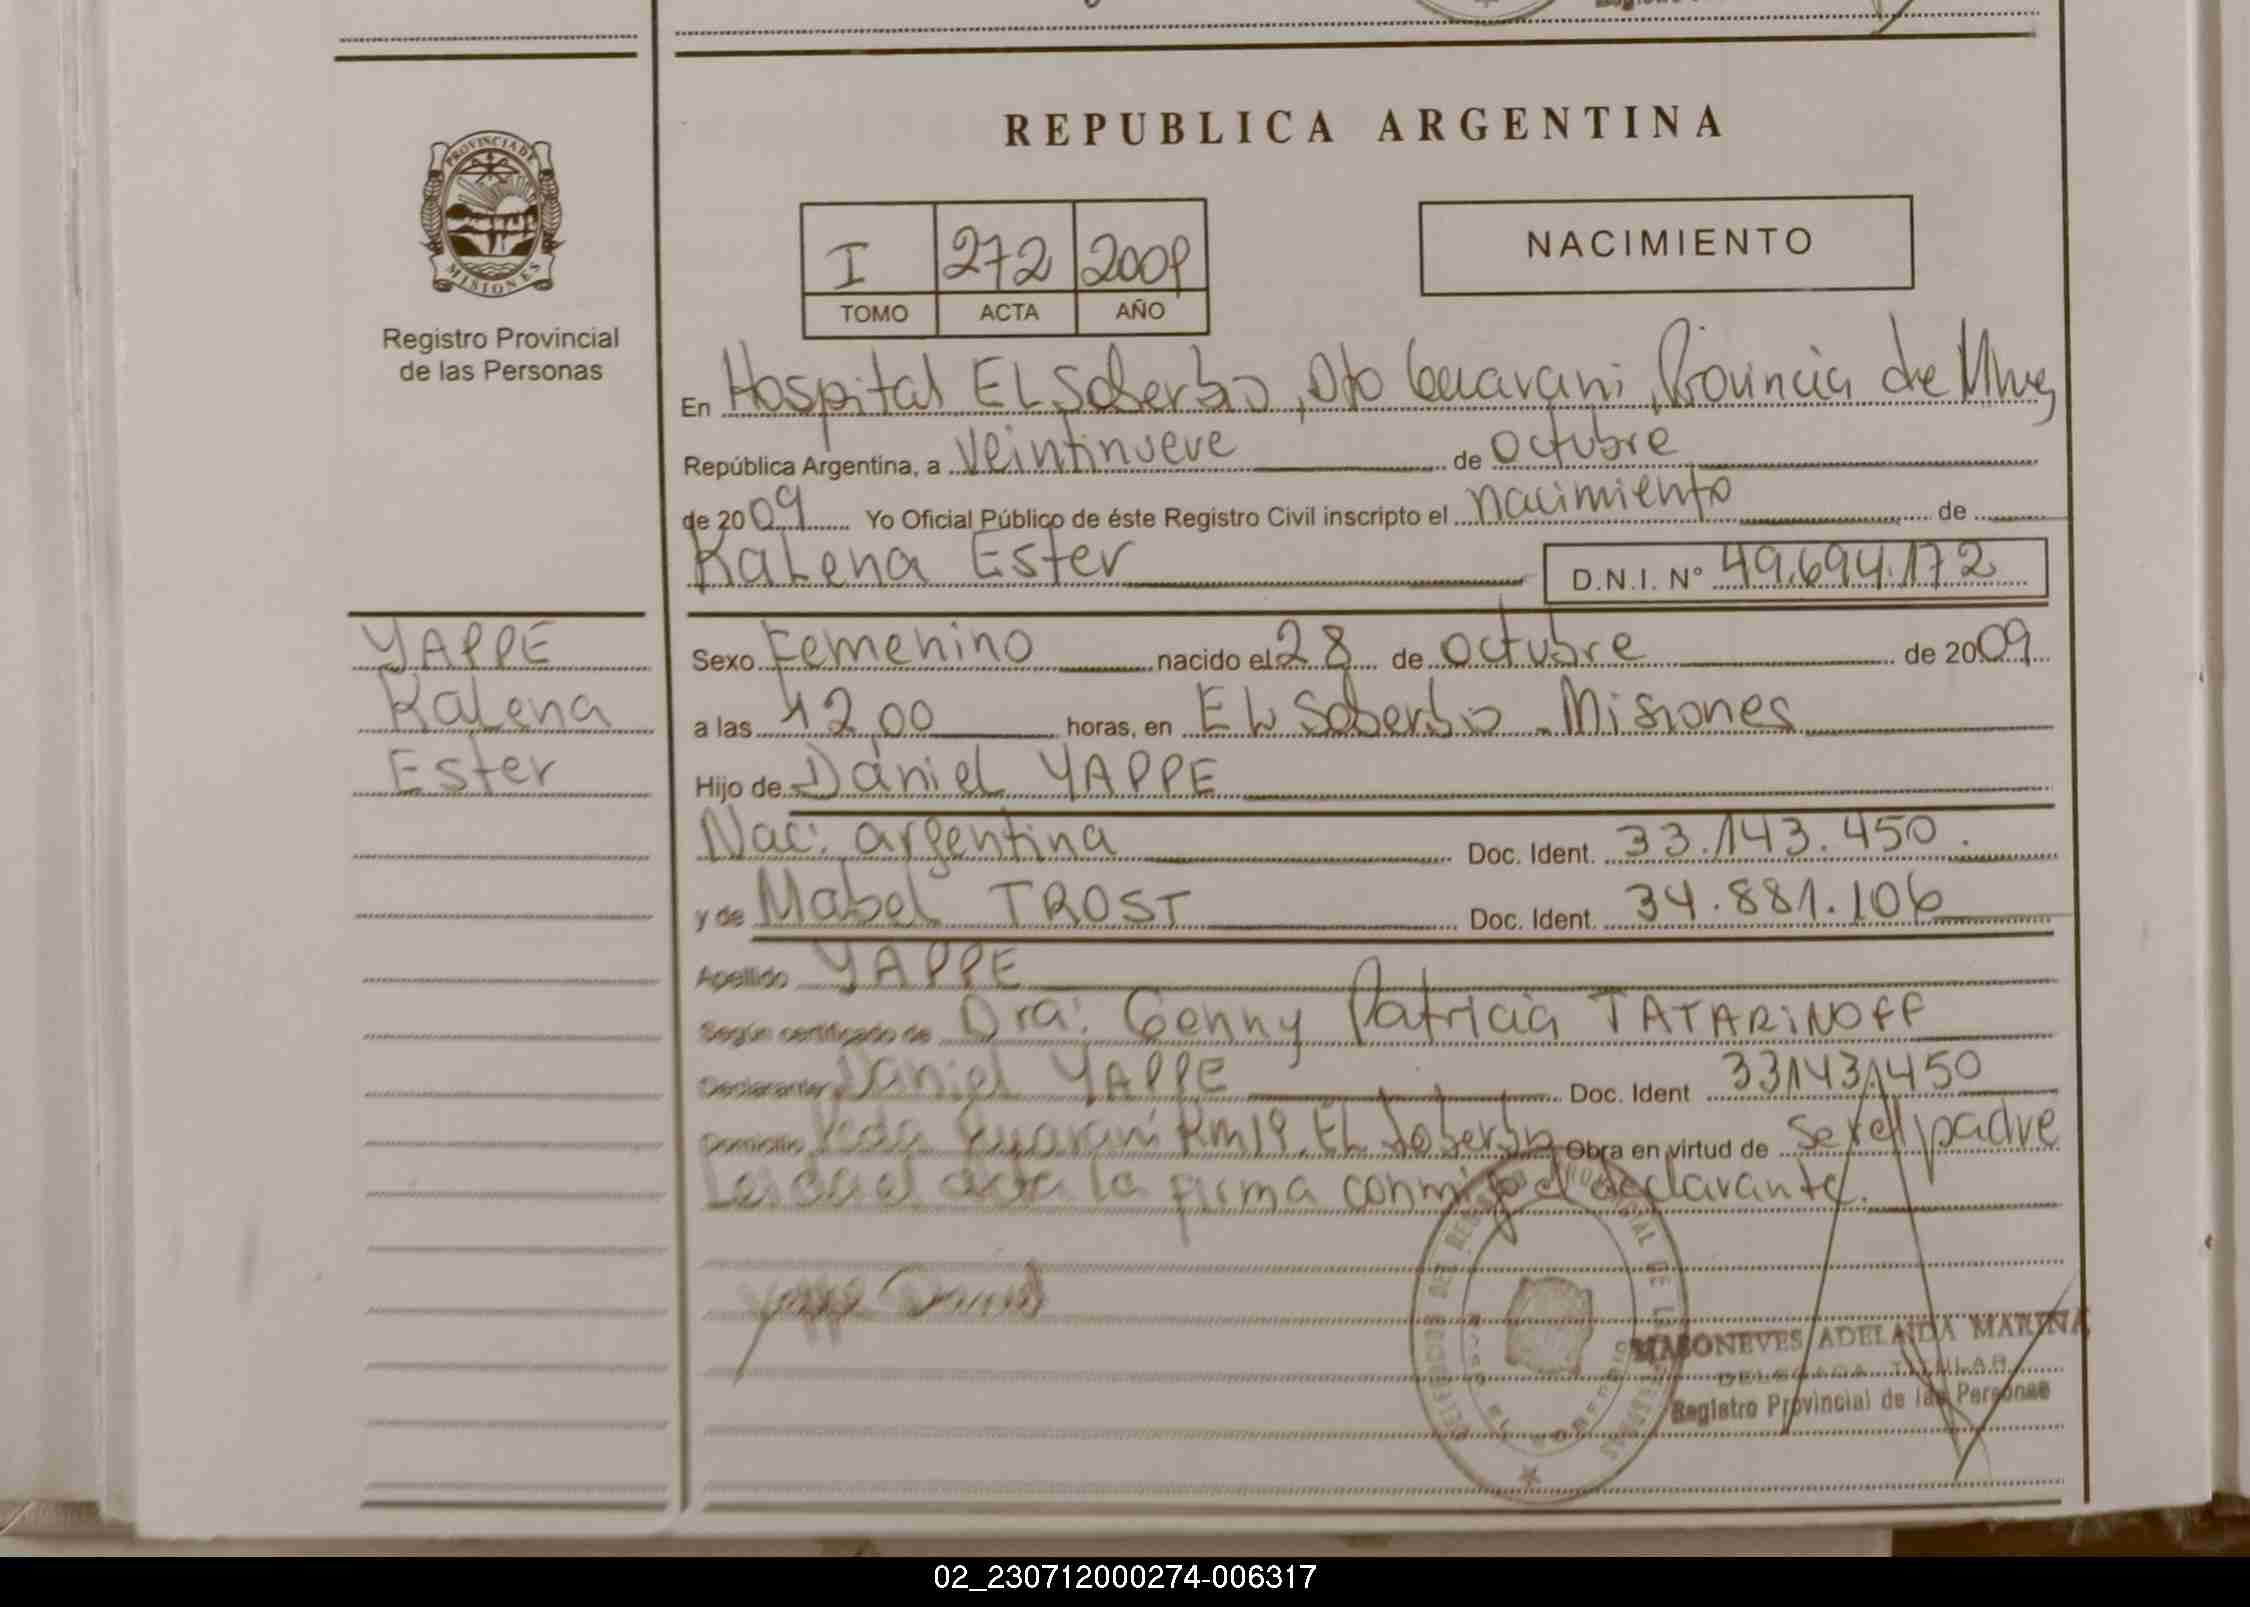 REPUBLICA ARGENTINA
PROVINCIA DE
MISIONES
Registro Provincial
de las Personas
I 272 2009
TOMO ACTA AÑO
NACIMIENTO
En Hospital EL Soberbio, Dto Guarani, Provincia de Mnes
República Argentina, a veintinueve de octubre
de 2009 Yo Oficial Público de éste Registro Civil inscripto el nacimiento de
Kalena Ester D.N.I. Nº 49.694.172
YAPPE
Kalena
Ester
Sexo Femenino nacido el 28 de octubre de 2009
a las 12,00 horas, en EL Soberbio - Misiones
Hijo de Daniel YAPPE
Nac: argentina Doc. Ident. 33.143.450.
y de Mabel TROST Doc. Ident. 34.881.106
Apellido YAPPE
Según certificado de Dra: Genny Patricia TATARINOFF
Declarante: Daniel YAPPE Doc. Ident 33.143.450
Domicilio Pcda Guarani Km 19. EL Soberbio Obra en virtud de ser el padre
Leida el acta la firma conmigo el declarante.
Yappe Daniel
MABONEVES ADELAIDA MARINA
DELEGADA TITULAR
Registro Provincial de las Personas
EL SOBERBIO
02_230712000274-006317